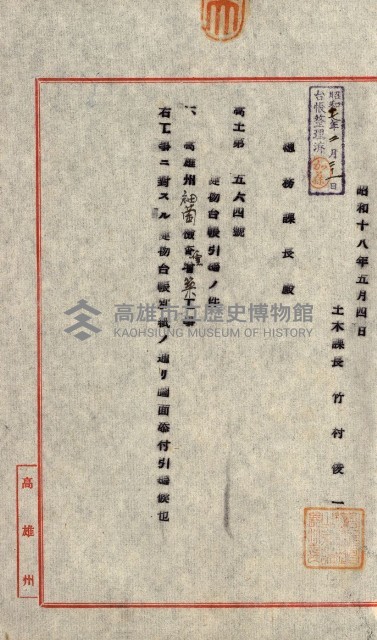 昭和十八年五月四日
土木課長 竹村俊一
總務課長殿
高土第 五六四號
建物台帳引繼ノ件
一、高雄州
右工事ニ對スル建物台帳別紙ノ通リ圖面添付引繼候也
台帳整理済
高雄州
高雄市立歷史博物館
KAOHSIUNG MUSEUM OF HISTORY